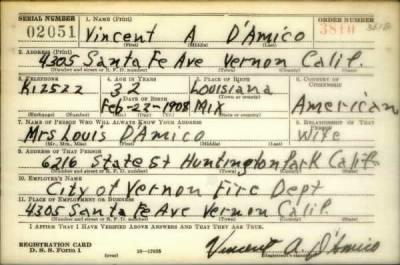 SERIAL NUMBER 1. NAME (Print) ORDER NUMBER
02051 Vincent A D'Amico 3810
(First) (Middle) (Last)
2. ADDRESS (Print)
4305 Santa Fe Ave Vernon Calif.
(Number and street or R. F. D. number) (Town) (County) (State)
3. TELEPHONE 4. AGE IN YEARS 5. PLACE OF BIRTH 6. COUNTRY OF CITIZENSHIP
K12522 32 Louisiana
DATE OF BIRTH (Town or county)
Feb-22-1908 Mix American
(Exchange) (Number) (Mo.) (Day) (Yr.) (State or country)
7. NAME OF PERSON WHO WILL ALWAYS KNOW YOUR ADDRESS 8. RELATIONSHIP OF THAT PERSON
Mrs Louis D'Amico Wife
(Mr., Mrs., Miss) (First) (Middle) (Last)
9. ADDRESS OF THAT PERSON
6216 State St Huntington Park Calif.
(Number and street or R. F. D. number) (Town) (County) (State)
10. EMPLOYER'S NAME
City of Vernon Fire Dept
11. PLACE OF EMPLOYMENT OR BUSINESS
4305 Santa Fe Ave Vernon Calif.
(Number and street or R. F. D. number) (Town) (County) (State)
I AFFIRM THAT I HAVE VERIFIED ABOVE ANSWERS AND THAT THEY ARE TRUE.
REGISTRATION CARD
D. S. S. Form 1 (over) Vincent A. D'Amico